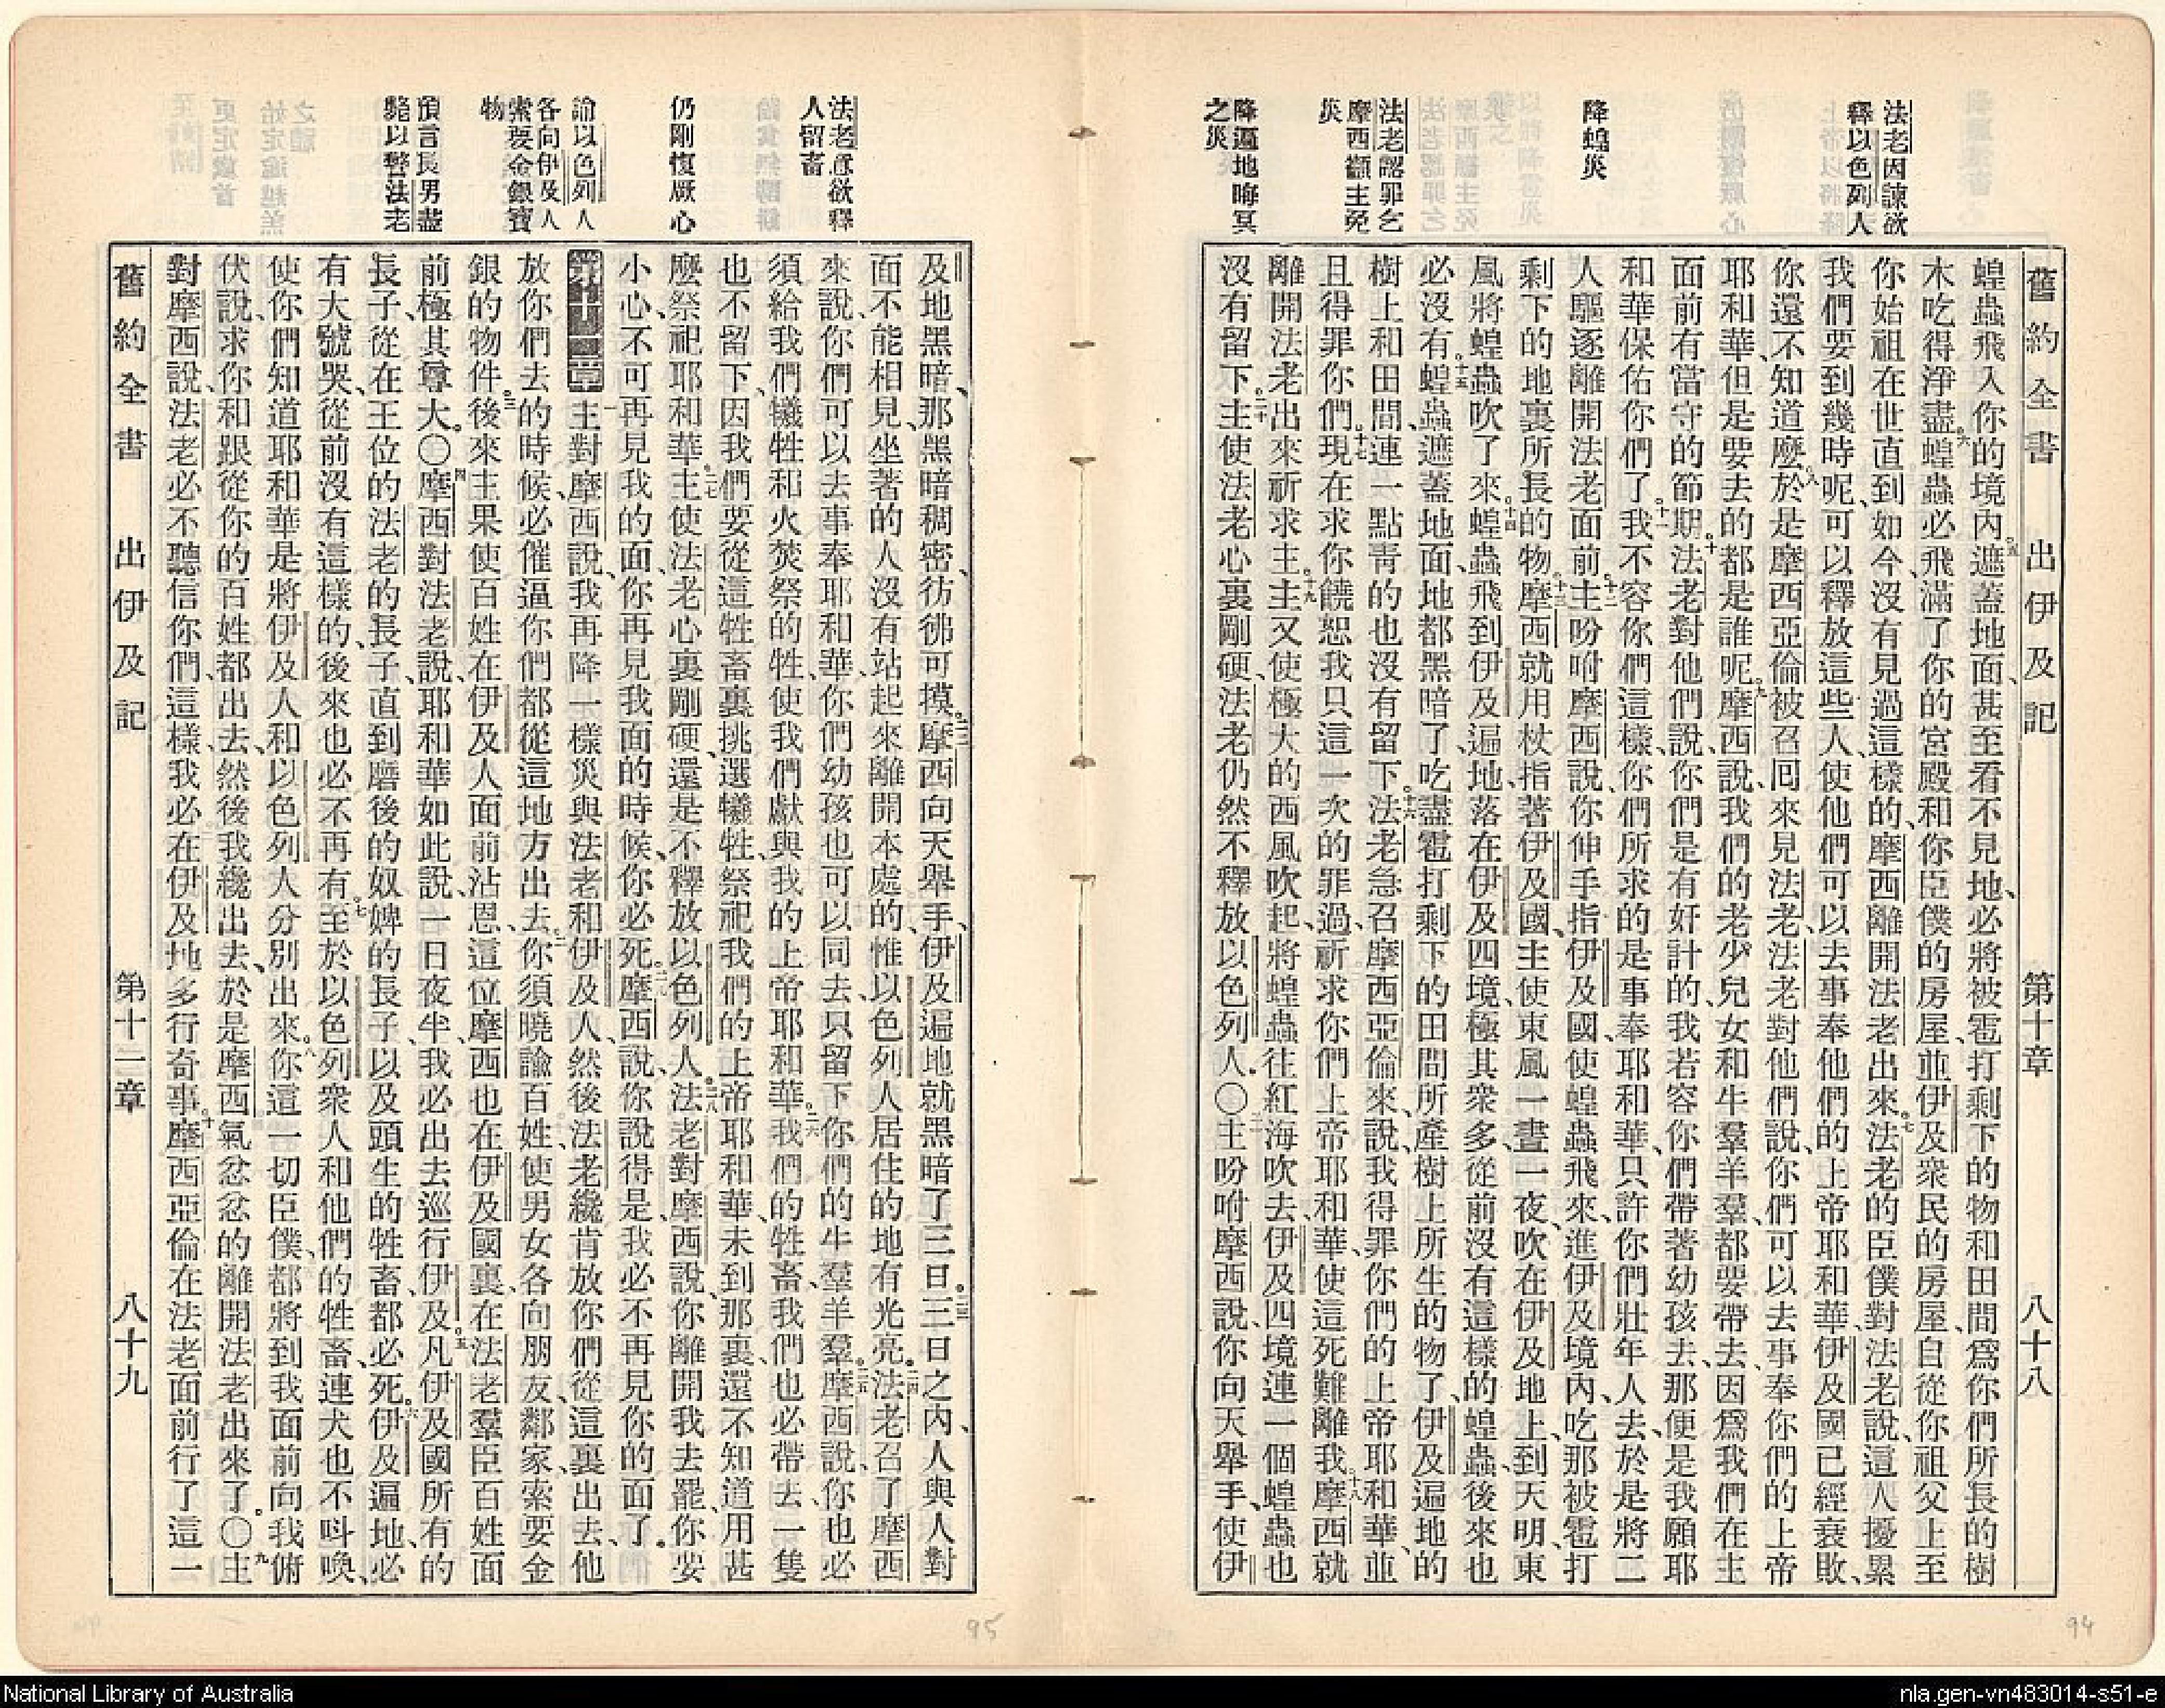 舊約全書 出伊及記 第十章 八十八
法老因諫欲
釋以色列人
降蝗災
法老認罪乞
摩西籲主免
災
降遍地晦冥
之災
蝗蟲飛入你的境內、五遮蓋地面、甚至看不見地、必將被雹打剩下的物和田間爲你們所長的樹
木吃得淨盡、六蝗蟲必飛滿了你的宮殿、和你臣僕的房屋、並伊及衆民的房屋、自從你祖父上至
你始祖在世直到如今、沒有見過這樣的、摩西離開法老出來。七法老的臣僕對法老說、這人擾累
我們要到幾時呢、可以釋放這些人、使他們可以去事奉他們的上帝耶和華、伊及國已經衰敗、
你還不知道麼。八於是摩西亞倫被召囘來見法老、法老對他們說、你們可以去事奉你們的上帝
耶和華、但是要去的都是誰呢。九摩西說、我們的老少兒女和牛羣羊羣、都要帶去、因爲我們在主
面前有當守的節期。十法老對他們說、你們是有奸計的、我若容你們帶著幼孩去、那便是我願耶
和華保佑你們了。十一我不容你們這樣、你們所求的是事奉耶和華、只許你們壯年人去、於是將二
人驅逐離開法老面前。十二主吩咐摩西說、你伸手指伊及國、使蝗蟲飛來、進伊及境內、吃那被雹打
剩下的地裏所長的物。十三摩西就用杖指著伊及國、主使東風一晝一夜、吹在伊及地上、到天明、東
風將蝗蟲吹了來。十四蝗蟲飛到伊及遍地、落在伊及四境、極其衆多、從前沒有這樣的蝗蟲、後來也
必沒有。十五蝗蟲遮蓋地面、地都黑暗了、吃盡雹打剩下的田間所產樹上所生的物了、伊及遍地的
樹上和田間、連一點靑的也沒有留下。十六法老急召摩西亞倫來、說、我得罪你們的上帝耶和華、並
且得罪你們。十七現在求你饒恕我只這一次的罪過、祈求你們上帝耶和華、使這死難離我。十八摩西就
離開法老出來祈求主。十九主又使極大的西風吹起、將蝗蟲往紅海吹去、伊及四境連一個蝗蟲也
沒有留下。二十主使法老心裏剛硬、法老仍然不釋放以色列人。〇二一主吩咐摩西說、你向天舉手、使伊
法老意欲釋
人留畜
仍剛愎厥心
諭以色列人
各向伊及人
索要金銀寶
物
預言長男盡
斃以警法老
及地黑暗、那黑暗稠密、彷彿可摸。二二摩西向天舉手、伊及遍地就黑暗了三日。二三三日之內、人與人對
面不能相見、坐著的人沒有站起來離開本處的、惟以色列人居住的地有光亮。二四法老召了摩西
來、說、你們可以去事奉耶和華、你們幼孩也可以同去、只留下你們的牛羣羊羣。二五摩西說、你也必
須給我們犧牲和火焚祭的牲、使我們獻與我的上帝耶和華。二六我們的牲畜、我們也必帶去、一隻
也不留下、因我們要從這牲畜裏、挑選犧牲、祭祀我們的上帝耶和華、未到那裏、還不知道用甚
麼祭祀耶和華。二七主使法老心裏剛硬、還是不釋放以色列人。二八法老對摩西說、你離開我去罷、你要
小心、不可再見我的面、你再見我面的時候、你必死。二九摩西說、你說得是、我必不再見你的面了。
第十一章 一主對摩西說、我再降一樣災與法老和伊及人、然後法老纔肯放你們從這裏出去、他
放你們去的時候、必催逼你們都從這地方出去。二你須曉諭百姓、使男女各向朋友鄰家、索要金
銀的物件。三後來主果使百姓在伊及人面前沾恩、這位摩西也在伊及國裏、在法老羣臣百姓面
前極其尊大。〇四摩西對法老說、耶和華如此說、一日夜半、我必出去巡行伊及。五凡伊及國所有的
長子、從在王位的法老的長子、直到磨後的奴婢的長子、以及頭生的牲畜、都必死。六伊及遍地必
有大號哭、從前沒有這樣的、後來也必不再有。七至於以色列衆人和他們的牲畜、連犬也不呌喚、
使你們知道耶和華是將伊及人和以色列人分別出來。八你這一切臣僕、都將到我面前、向我俯
伏、說、求你和跟從你的百姓都出去、然後我纔出去、於是摩西氣忿忿的離開法老出來了。〇九主
對摩西說、法老必不聽信你們、這樣、我必在伊及地多行奇事。十摩西亞倫在法老面前行了這一
舊約全書 出伊及記 第十二章 八十九
95
94
National Library of Australia
nla.gen-vn483014-s51-e